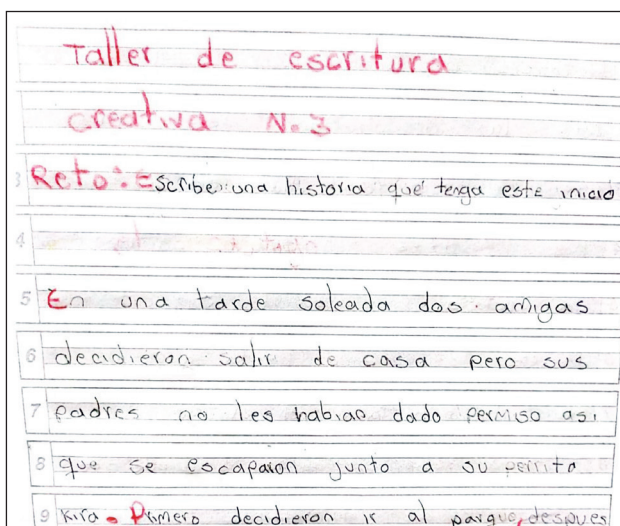 Taller de escritura
creativa N.3
3 Reto: Escribe una historia que tenga este inicio
4
5 En una tarde soleada dos amigas
6 decidieron salir de casa pero sus
7 padres no les habian dado permiso asi
8 que se escaparon junto a su perrita
9 Kira. Primero decidieron ir al parque, despues